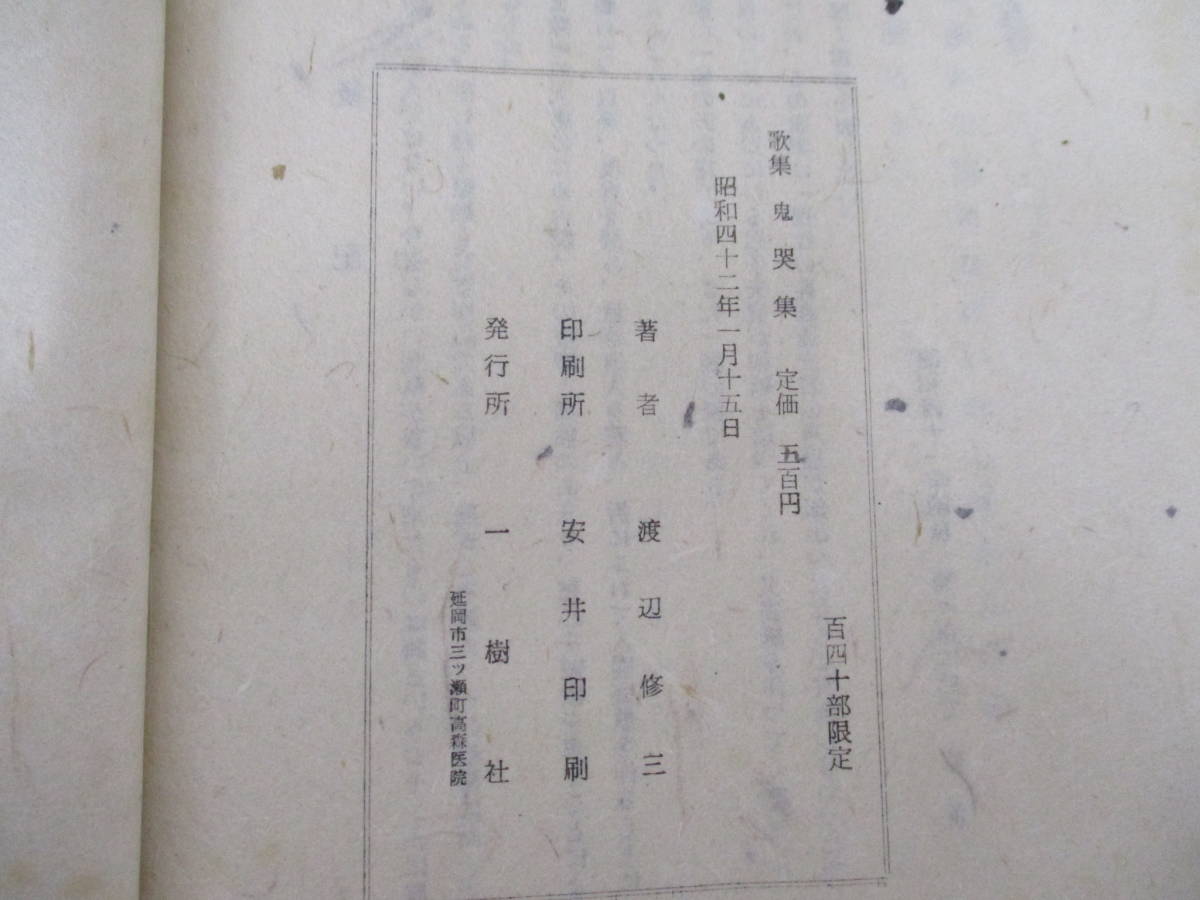 百四十部限定
歌集 鬼哭集 定価 五百円
昭和四十二年一月十五日
著者 渡辺修三
印刷所 安井印刷
発行所 一樹社
延岡市三ツ瀬町高森医院